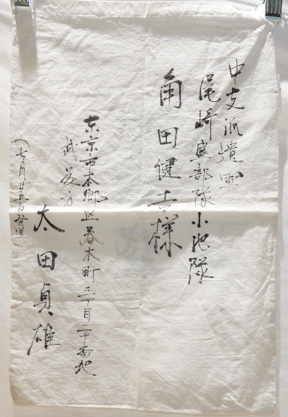 中支派遣軍
尾崎奥部隊小池隊
角田健一様
東京市本郷区春木町三丁目二十番地
武茂方
太田貞雄
(七月廿五日発送)